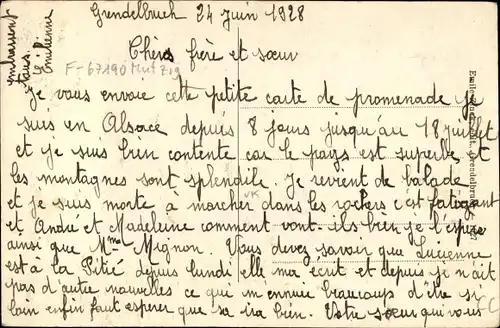 Grendelbruch 24 juin 1928
Chers frère et sœur
F-67190 Mutzig
je vous envoie cette petite carte de promenade je
suis en Alsace depuis 8 jours jusqu'au 18 juillet
et je suis bien contente car le pays est superbe et
les montagnes sont splendide. Je revient de balade
et je suis morte à marcher dans les rochers c'est fatigant
et André et Madeleine comment vont-ils bien je l'espère
ainsi que Mme Mignon. Vous devez savoir que Lucienne
est à la Pitié depuis lundi elle m'a écrit et depuis je n'ait
pas d'autre nouvelles ce qui m'ennuie beaucoups d'être si
loin enfin faut esperer que sa ira bien. Votre sœur qui vous
embrassent
tous.
Emilienne